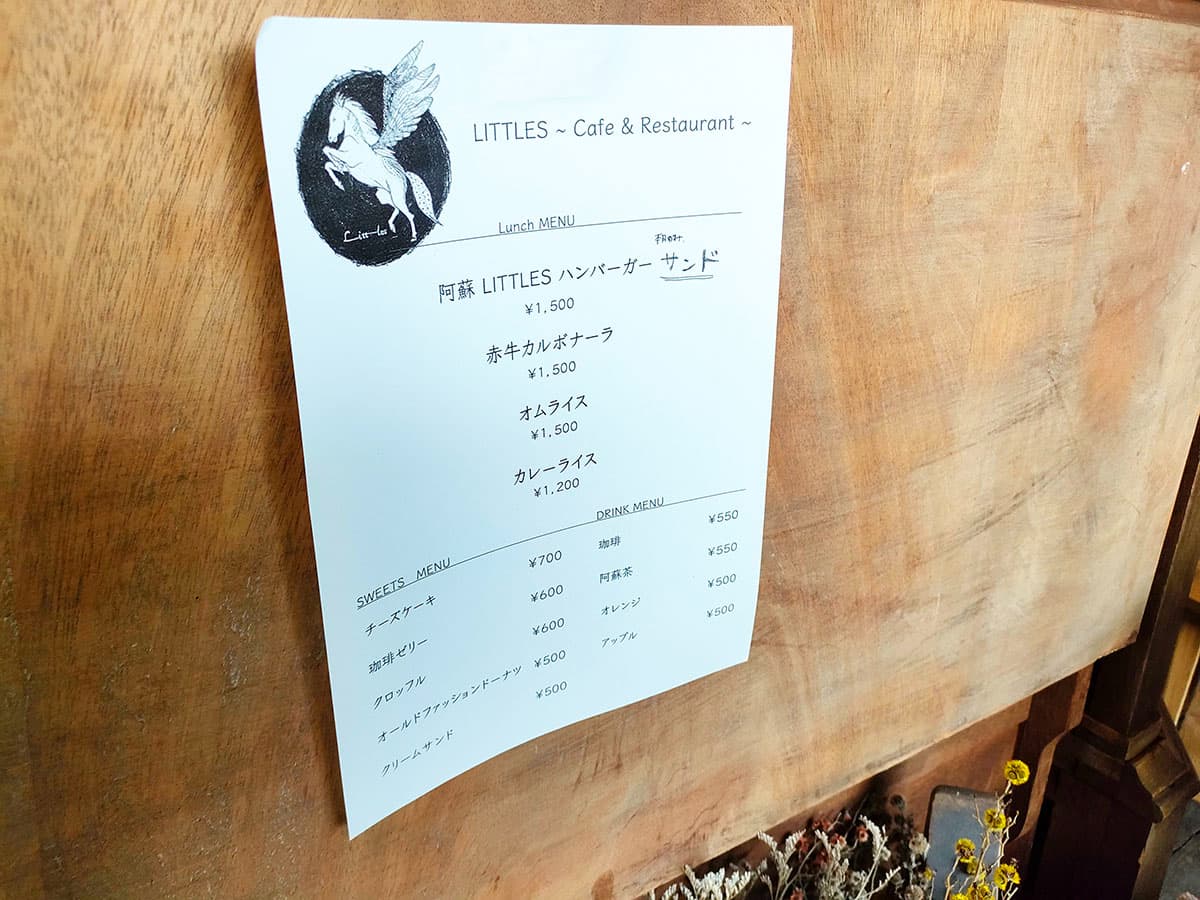 LITTLES ~ Cafe & Restaurant ~
Littles
Lunch MENU
阿蘇 LITTLES ハンバーガー サンド
¥1,500
赤牛カルボナーラ
¥1,500
オムライス
¥1,500
カレーライス
¥1,200
SWEETS MENU
チーズケーキ ¥700
珈琲ゼリー ¥600
クロッフル ¥600
オールドファッションドーナツ ¥500
クリームサンド ¥500
DRINK MENU
珈琲 ¥550
阿蘇茶 ¥550
オレンジ ¥500
アップル ¥500